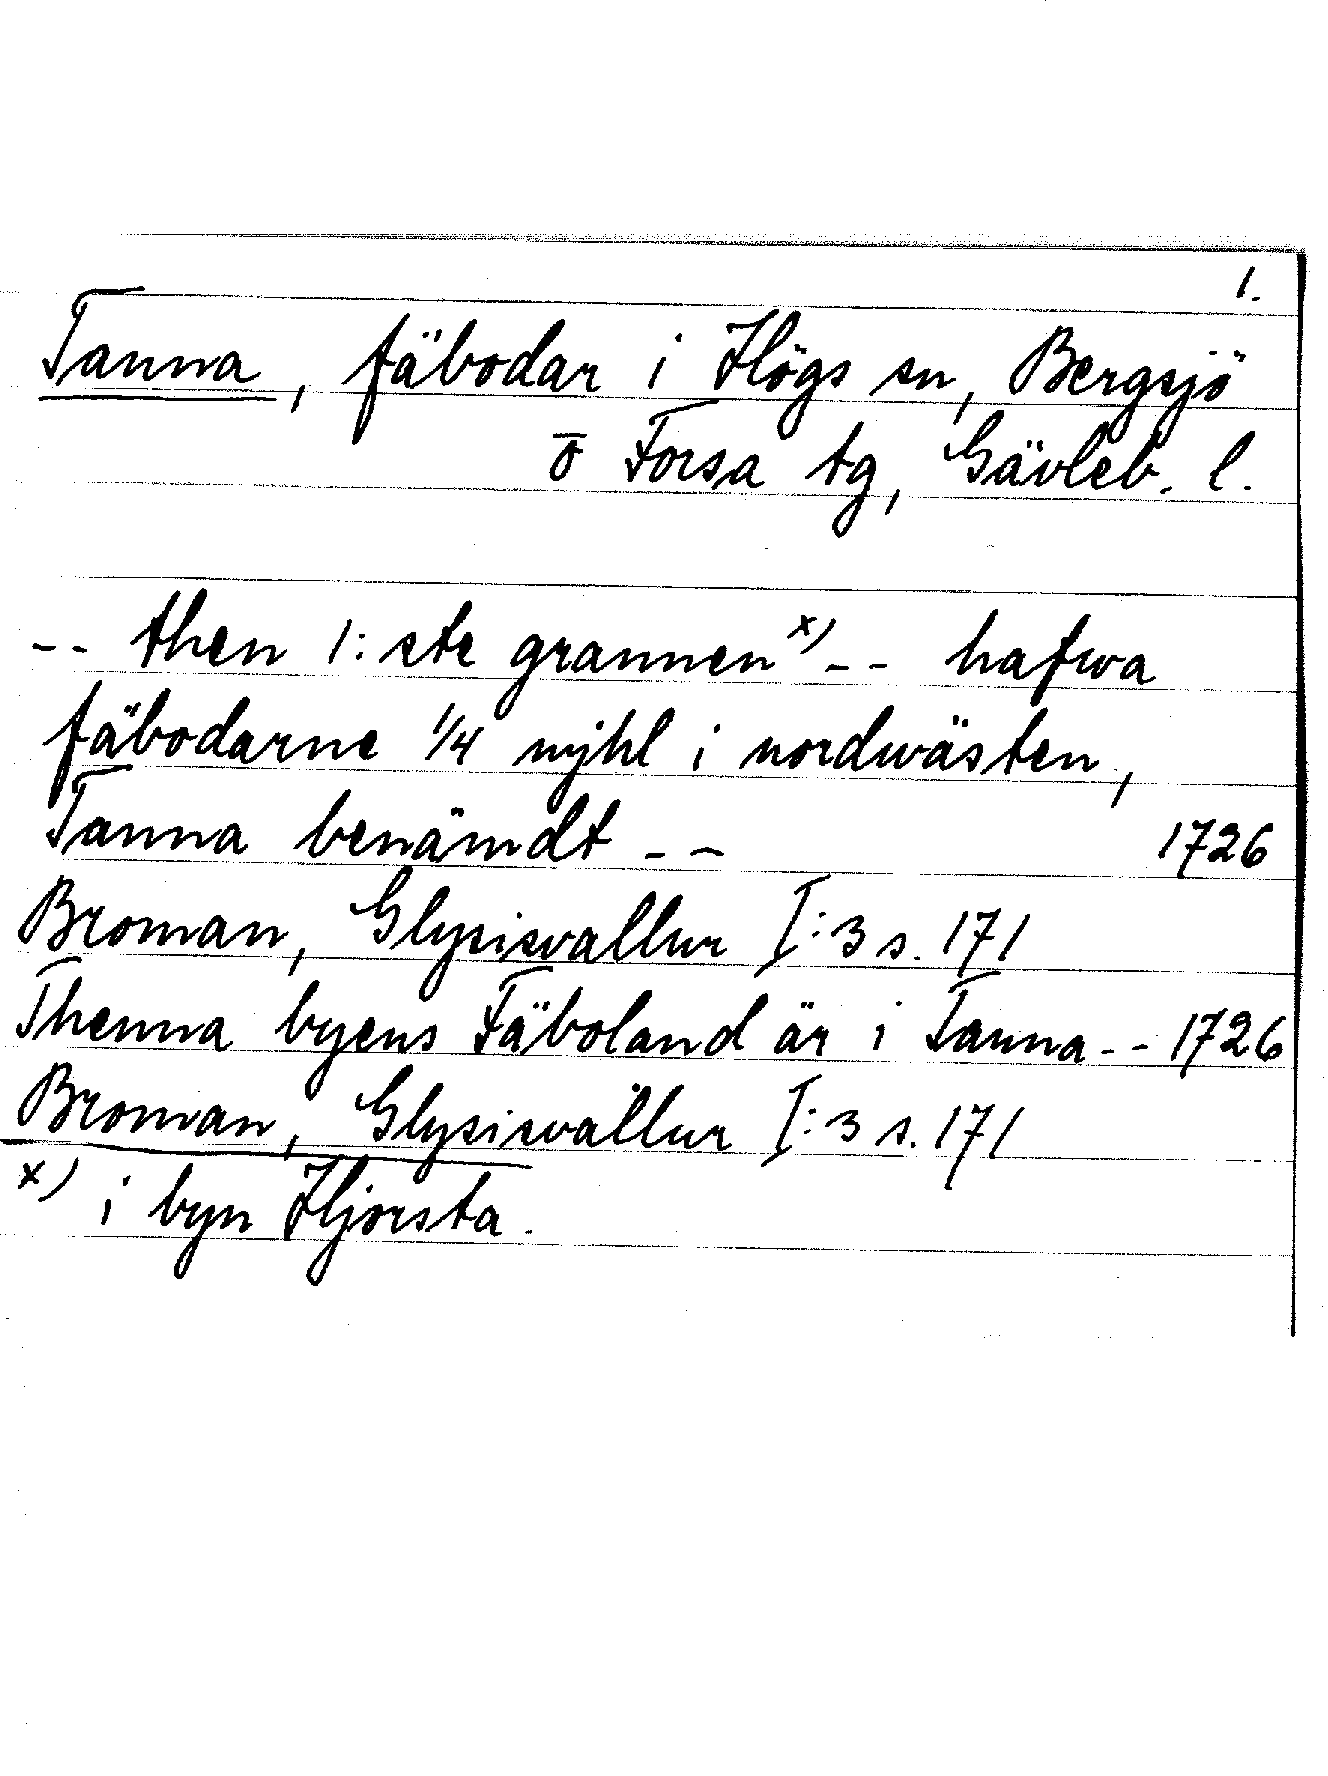 1.
Tanna, fäbodar i Högs sn, Bergsjö
o̅ Forsa tg, Gävleb. l.
-- then 1:ste grannen x) -- hafwa
fäbodarne 1/4 mijhl i nordwästen,
Tanna benämdt -- 1726
Broman, Glysisvallur I:3 s. 171
Thenna byens Fäboland är i Tanna -- 1726
Broman, Glysisvallur I:3 s. 171
x) i byn Hjorsta.